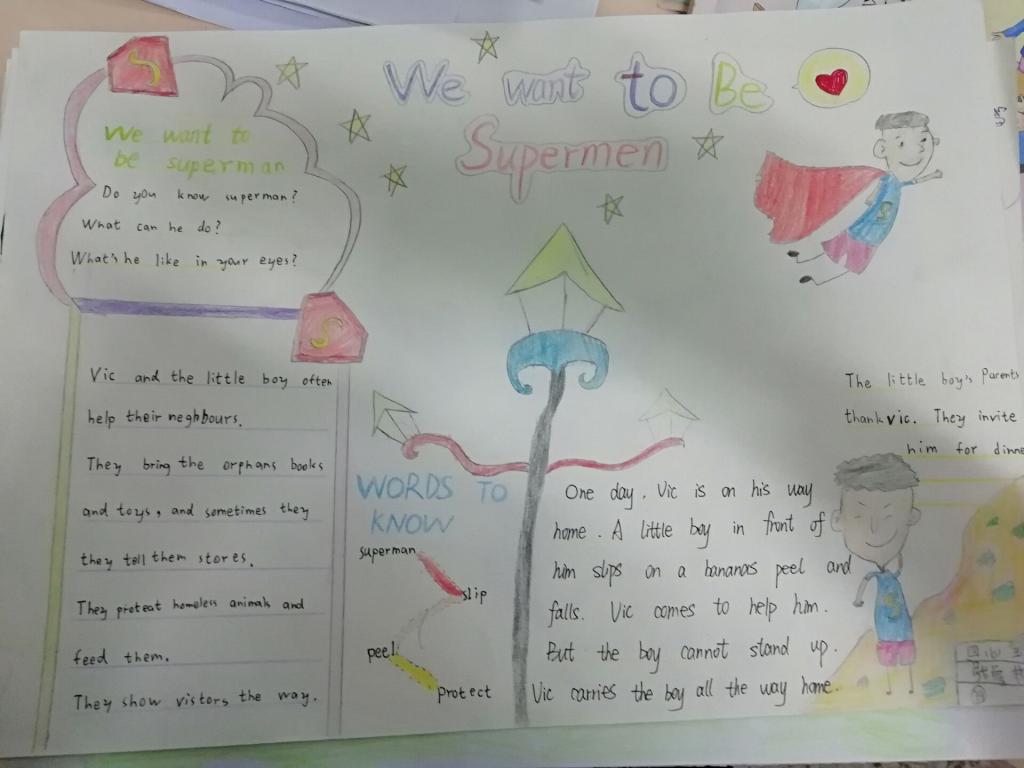 We want to Be
Supermen
S
We want to
be superman
Do you know superman?
What can he do?
What's he like in your eyes?
S
Vic and the little boy often
help their neghbours.
They bring the orphans books
and toys, and sometimes they
they tell them stores.
They proteat homeless animals and
feed them.
They show vistors the way.
WORDS TO
KNOW
superman
slip
peel
protect
One day. Vic is on his way
home. A little boy in front of
him slips on a bananas peel and
falls. Vic comes to help him.
But the boy cannot stand up.
Vic carries the boy all the way home.
The little boy's Parents
thank Vic. They invite
him for dinne
S
S